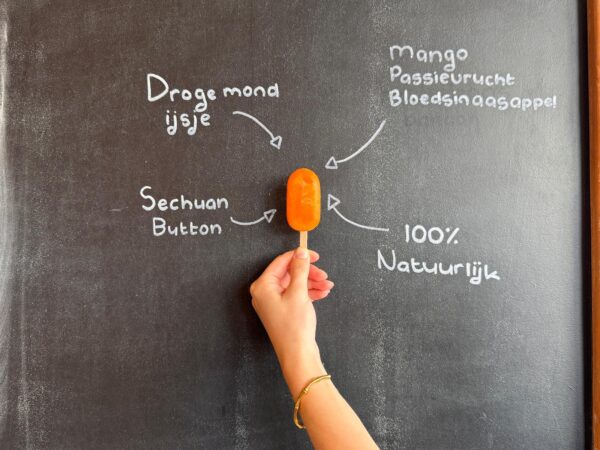 Droge mond
ijsje
Mango
Passievrucht
Bloedsinaasappel
Sechuan
Button
100%
Natuurlijk